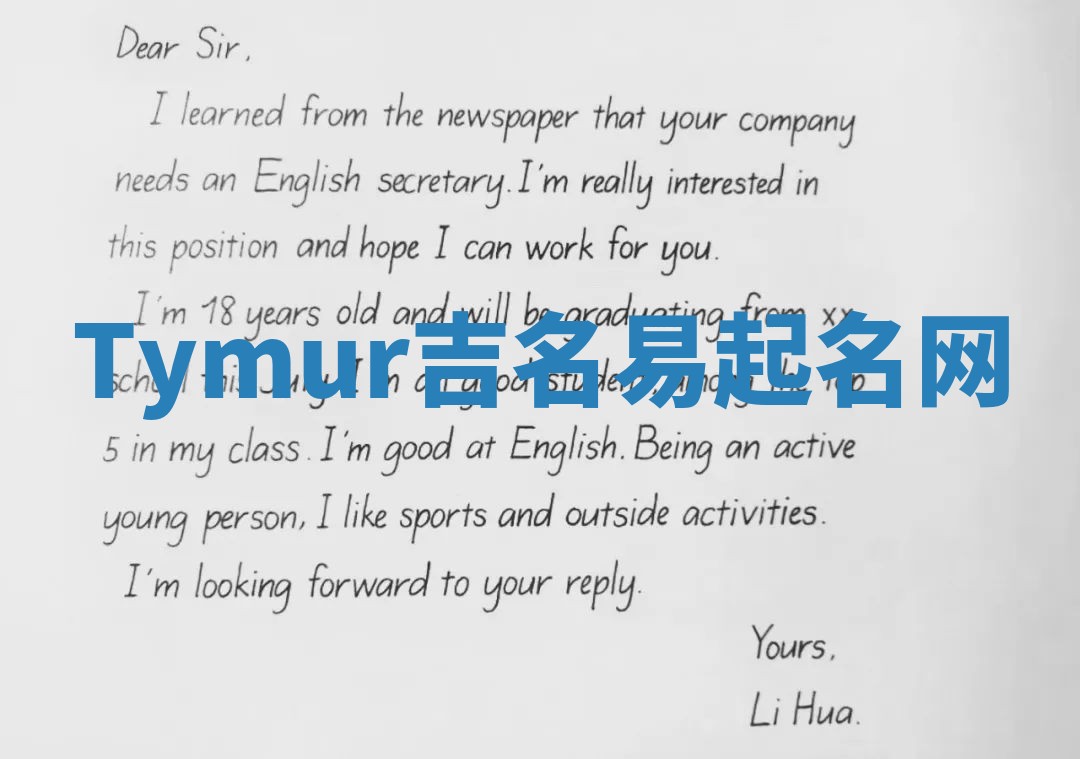 Dear Sir,
I learned from the newspaper that your company
needs an English secretary. I'm really interested in
this position and hope I can work for you.
I'm 18 years old and will be graduating from xx
Tymur吉名易起名网
school this July. I'm a good student, among the top
5 in my class. I'm good at English. Being an active
young person, I like sports and outside activities.
I'm looking forward to your reply.
Yours,
Li Hua.